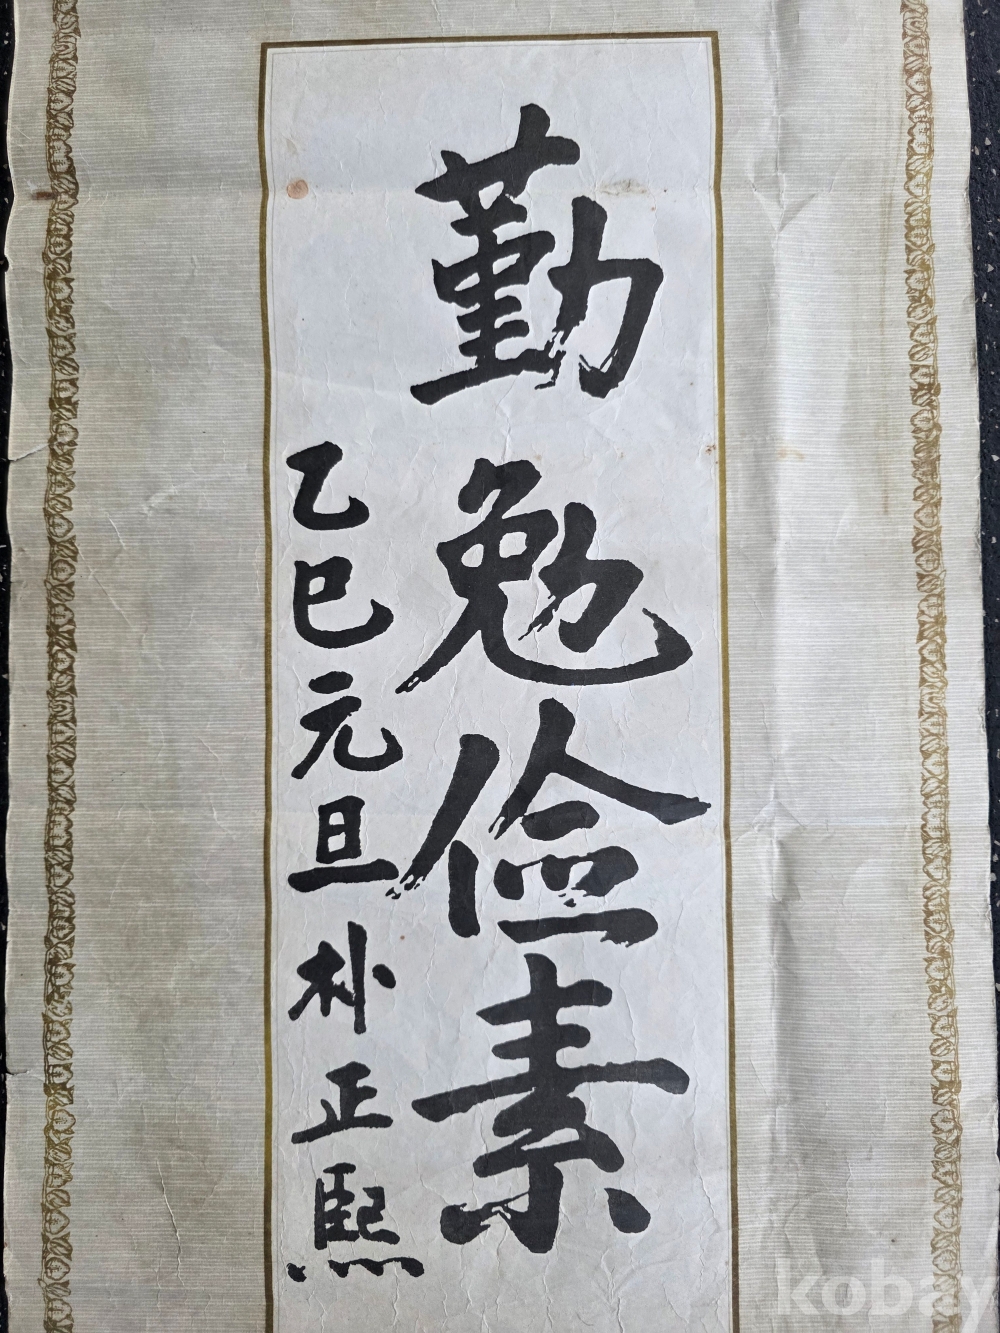 勤勉儉素
乙巳元旦 朴正熙
kobay